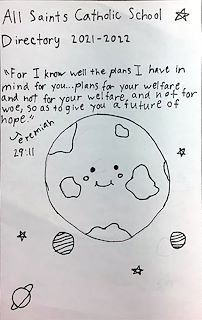 All Saints Catholic School
Directory 2021-2022
"For I know well the plans I have in
mind for you...plans for your welfare,
and not for your welfare, and not for
woe, so as to give you a future of
hope."
Jeremiah
29:11